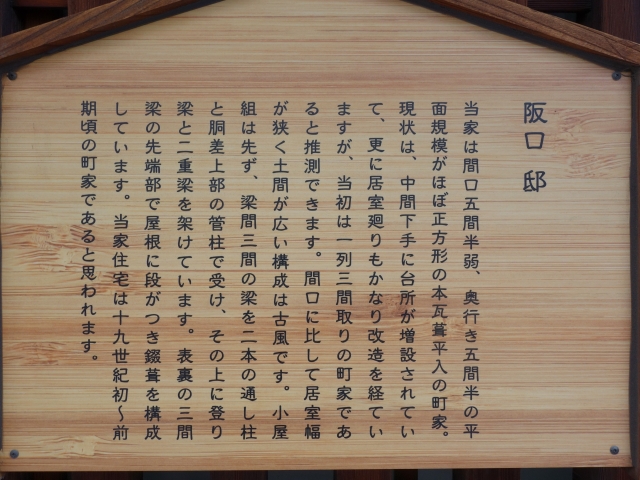 阪口邸
当家は間口五間半弱、奥行き五間半の平
面規模がほぼ正方形の本瓦葺平入の町家。
現状は、中間下手に台所が増設されてい
て、更に居室廻りもかなり改造を経てい
ますが、当初は一列三間取りの町家であ
ると推測できます。間口に比して居室幅
が狭く土間が広い構成は古風です。小屋
組は先ず、梁間三間の梁を二本の通し柱
と胴差上部の管柱で受け、その上に登り
梁と二重梁を架けています。表裏の三間
梁の先端部で屋根に段がつき錣葺を構成
しています。当家住宅は十九世紀初～前
期頃の町家であると思われます。